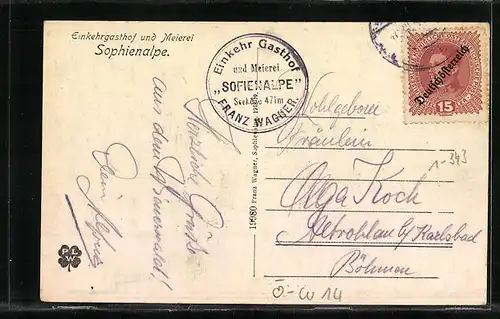 Einkehrgasthof und Meierei
Sophienalpe.
Einkehr Gasthof
und Meierei
„SOFIENALPE"
Seehöhe 471m
FRANZ WAGNER.
Deutschösterreich
15
Herzliche Grüße
aus dem Wienerwald!
Dein
119080 Franz Wagner, Sophienalpe
Wohlgeboren
Fräulein
Olga Koch
Altrohlau b/ Karlsbad
Böhmen
1-343
Ö.-W 14
P. L.
W.